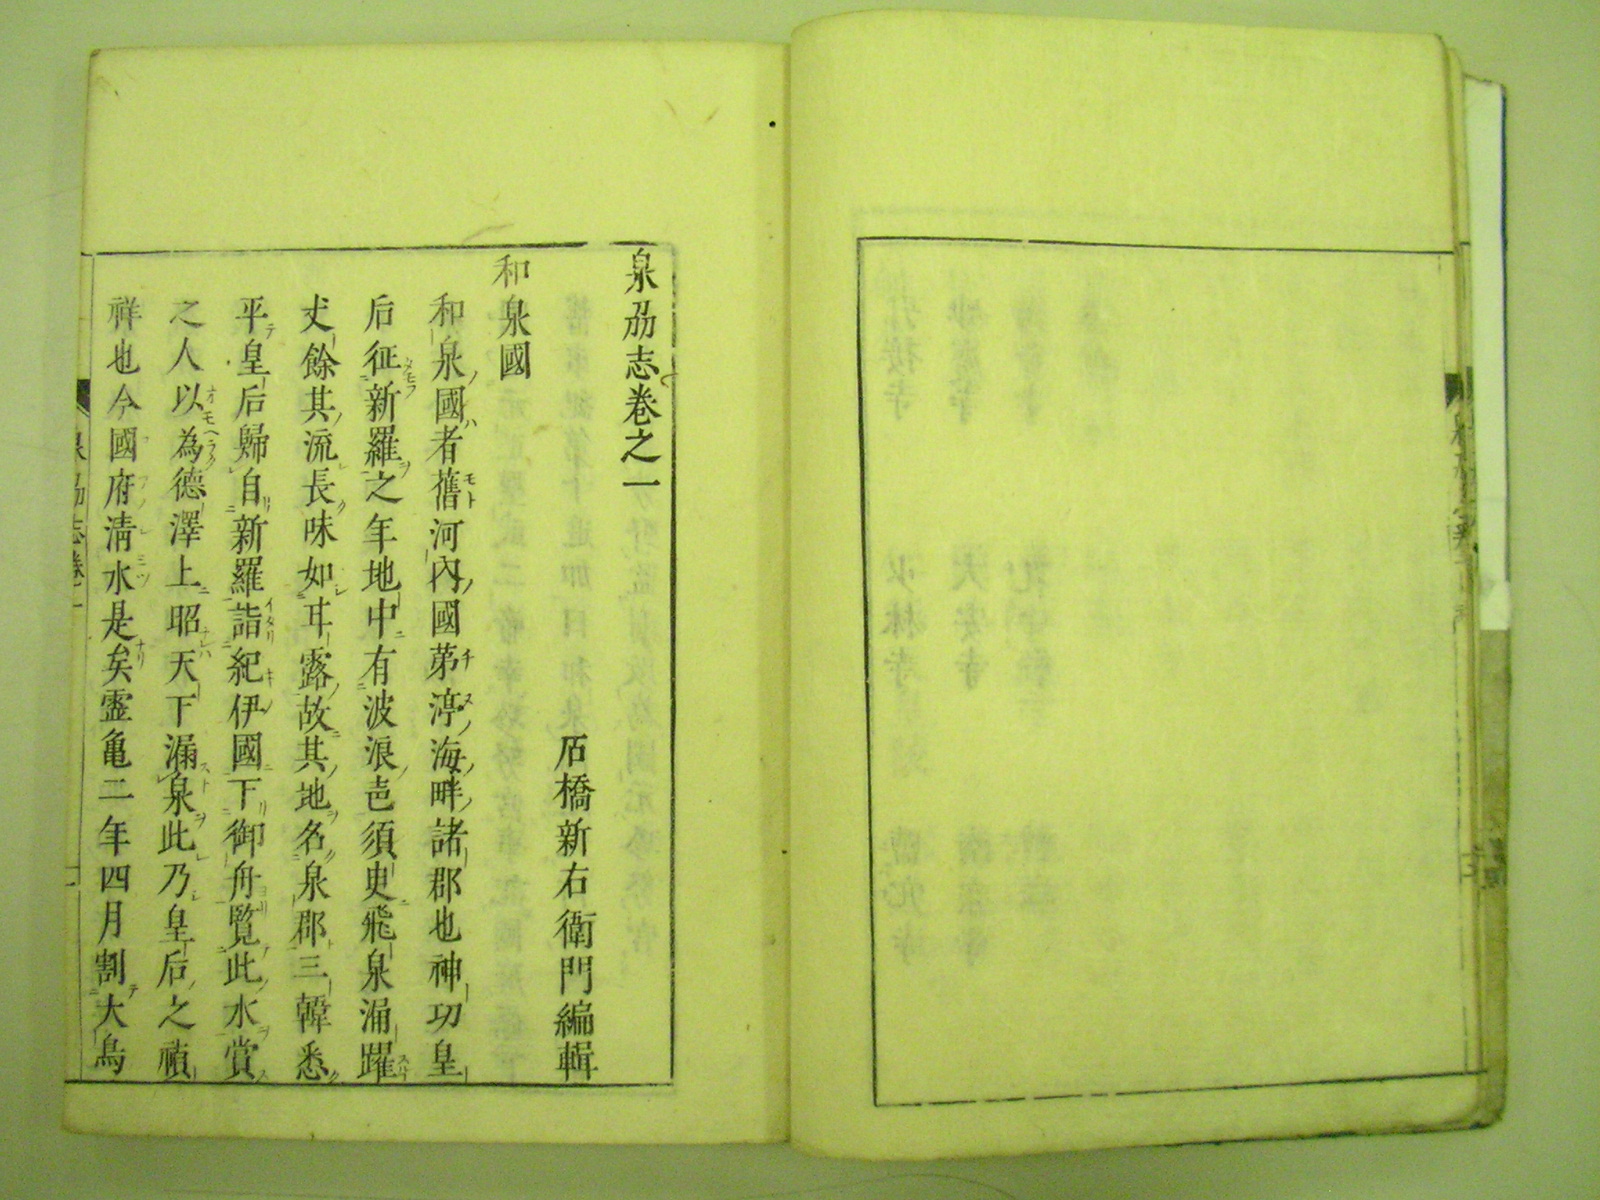 泉刕志卷之一
石橋新右衛門編輯
和泉國
和泉國者舊河內國茅渟海畔諸郡也神功皇
后征新羅之年地中有波浪邑須臾飛泉涌躍
丈餘其流長味如甘露故其地名泉郡三韓悉
平皇后歸自新羅詣紀伊國下御舟覽此水賞
之人以為德澤上昭天下漏泉此乃皇后之禎
祥也今國府淸水是矣靈亀二年四月割大鳥
泉刕志卷一